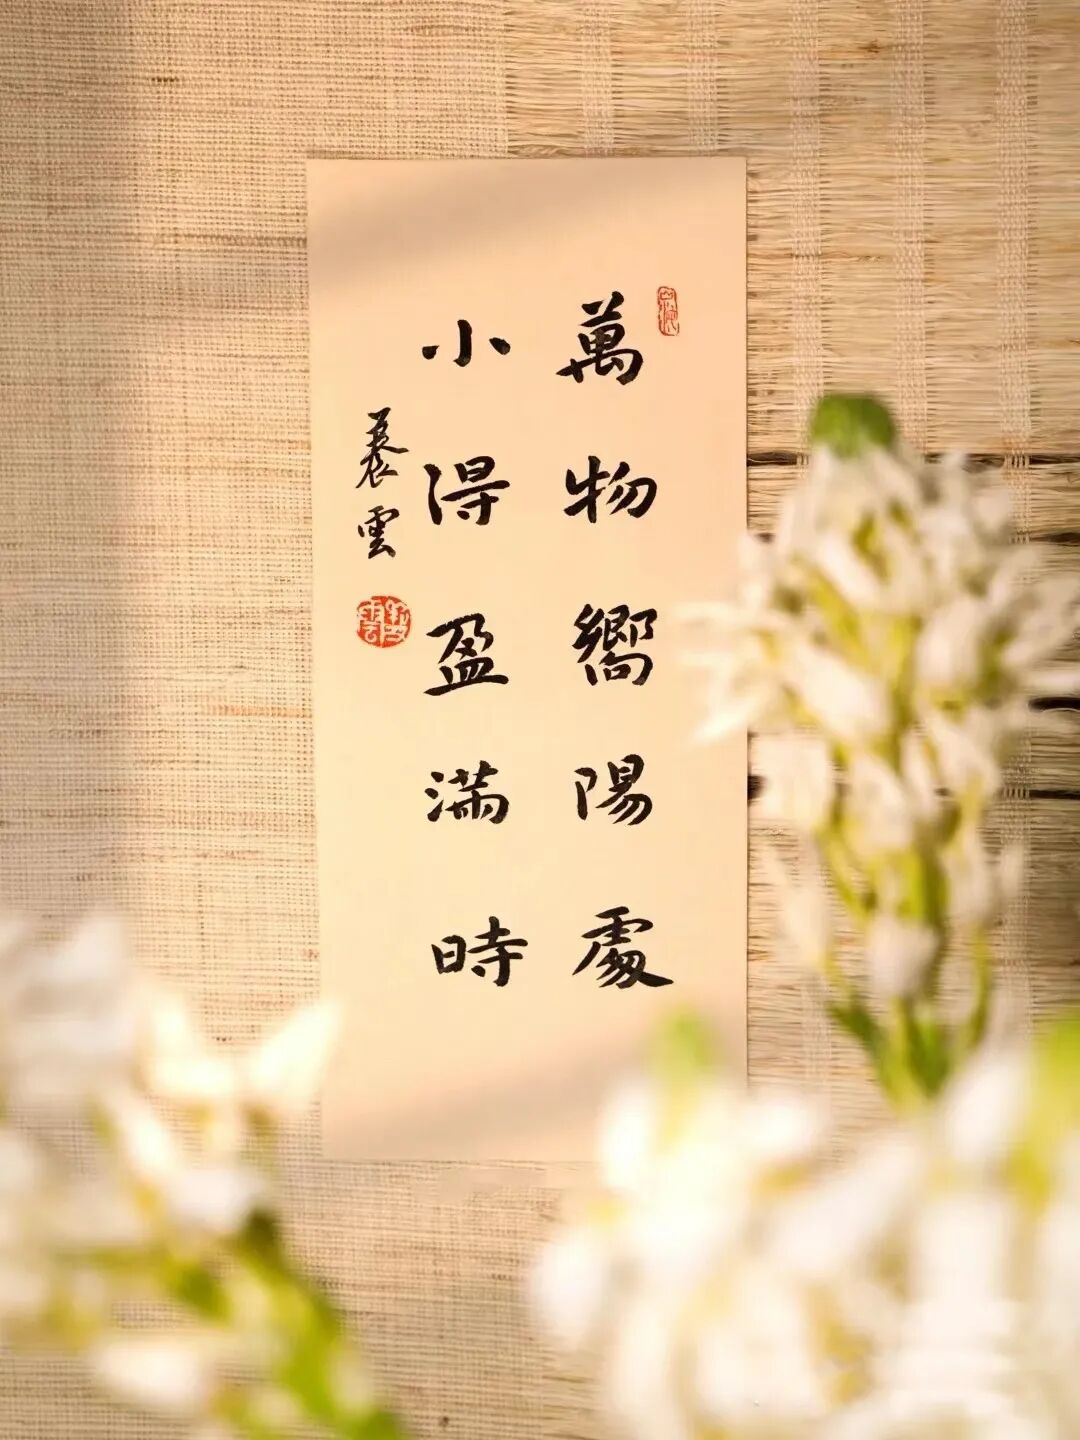 萬物嚮陽處
小得盈滿時